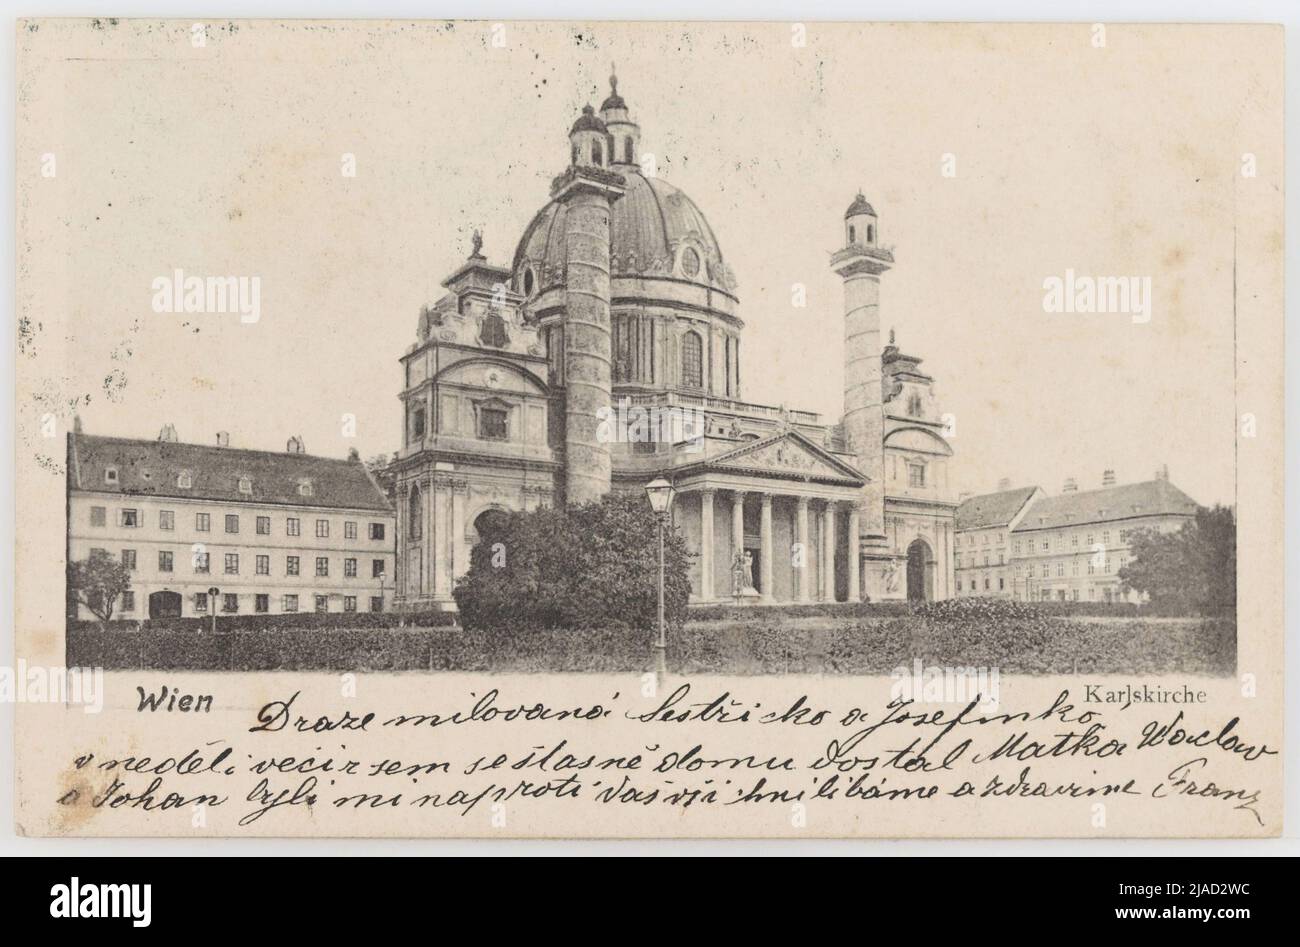 Wien
Karlskirche
Draze milovaná Sestřičko a Josefinko
v neděli večír sem se šťasně domu dostal Matka Waclaw
a Johan byli mi naproti vas vši chni líbáme a zdravime Franz
alamy
alamy
Image ID: 2JAD2WC
www.alamy.com